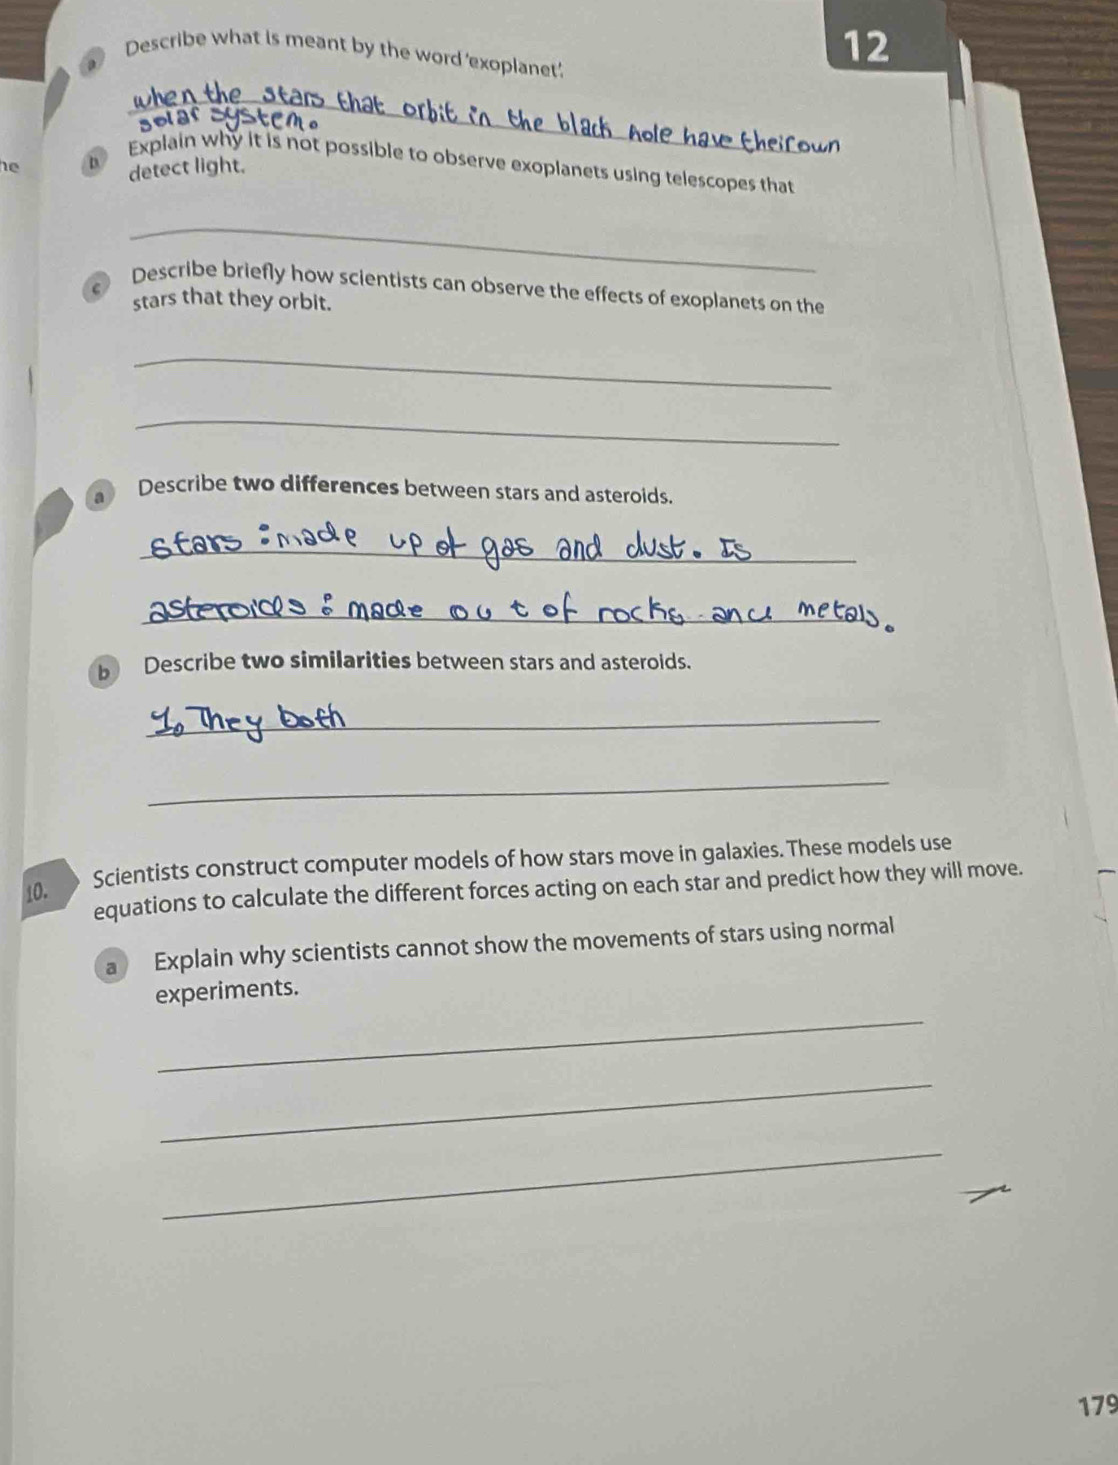 12
a Describe what is meant by the word 'exoplanet'.
when the stars that orbit in the black hole have their own
solar system.
b Explain why it is not possible to observe exoplanets using telescopes that
detect light.
he
c Describe briefly how scientists can observe the effects of exoplanets on the
stars that they orbit.
a Describe two differences between stars and asteroids.
stars : made up of gas and dust. Is
asteroids : made out of rocks and metals.
b Describe two similarities between stars and asteroids.
1. They both
10. Scientists construct computer models of how stars move in galaxies. These models use
equations to calculate the different forces acting on each star and predict how they will move.
a Explain why scientists cannot show the movements of stars using normal
experiments.
179